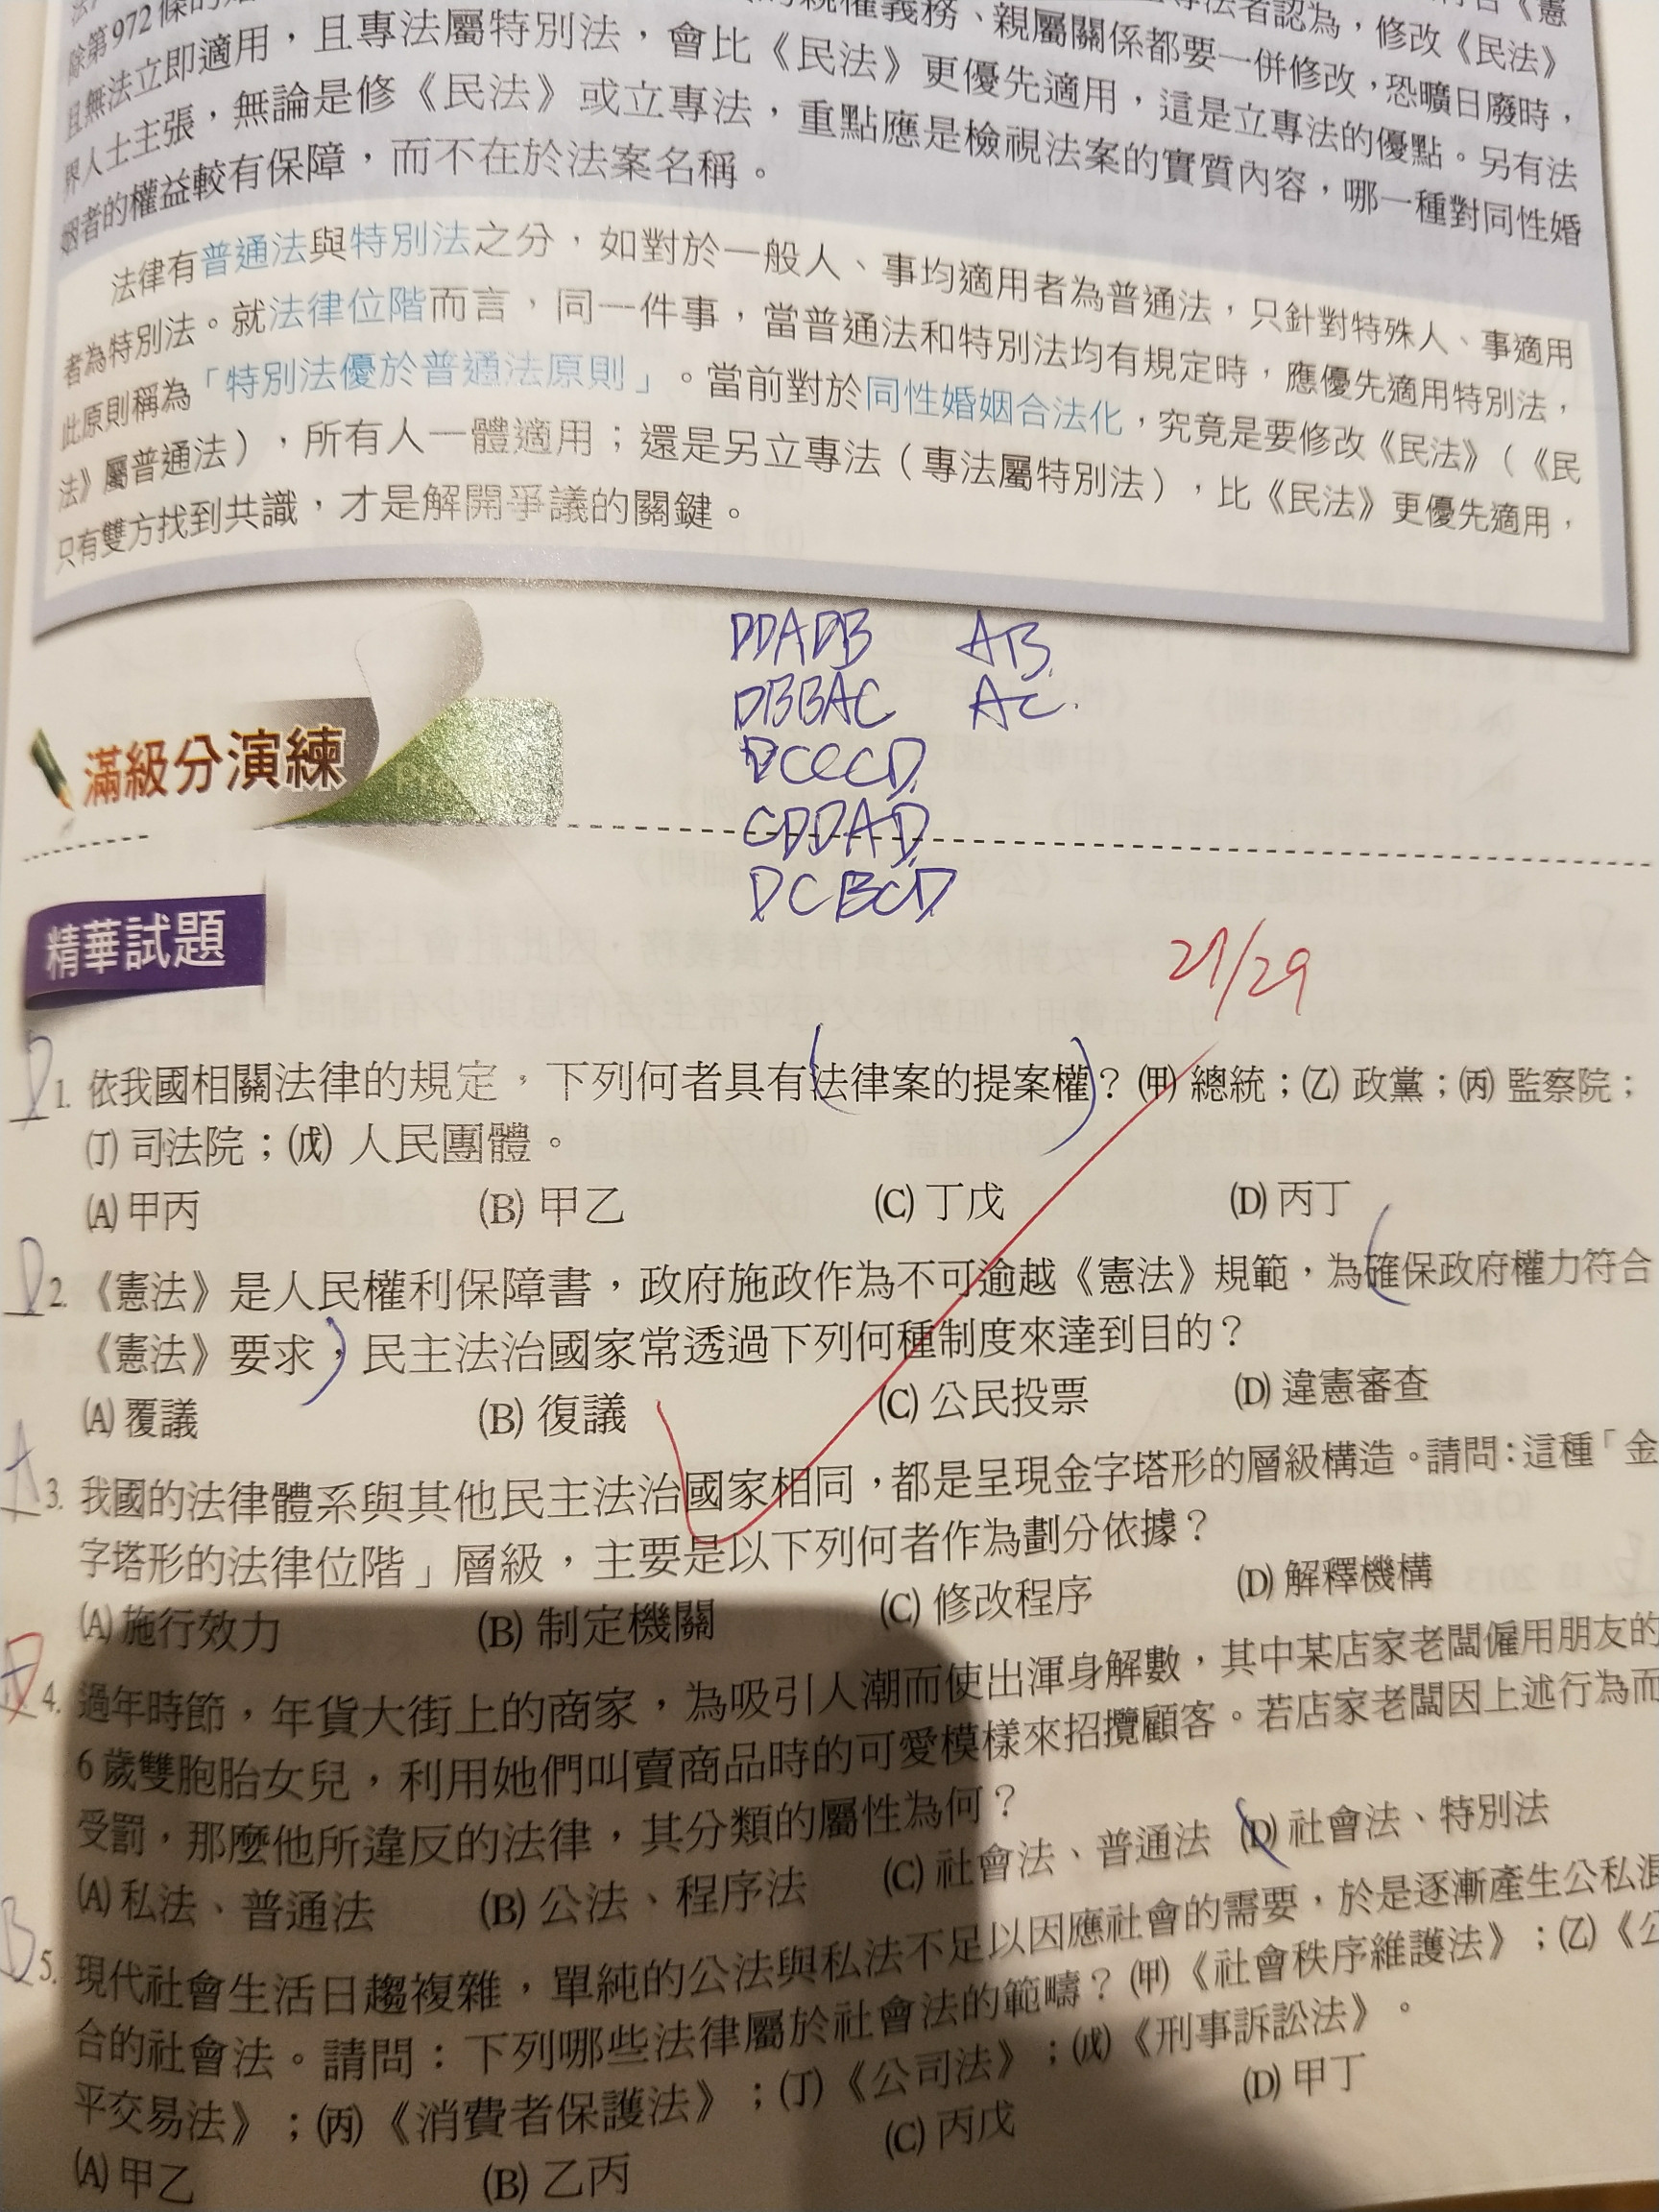 除第972條的
親權義務、親屬關係都要一併修改,恐曠日廢時,
專法者認為,修改《民法》
且無法立即適用,且專法屬特別法,會比《民法》更優先適用,這是立專法的優點。另有法
界人士主張,無論是修《民法》或立專法,重點應是檢視法案的實質內容,哪一種對同性婚
姻者的權益較有保障,而不在於法案名稱。
法律有普通法與特別法之分,如對於一般人、事均適用者為普通法,只針對特殊人、事適用
者為特別法。就法律位階而言,同一件事,當普通法和特別法均有規定時,應優先適用特別法,
此原則稱為「特別法優於普通法原則」。當前對於同性婚姻合法化,究竟是要修改《民法》(《民
法》屬普通法),所有人一體適用;還是另立專法(專法屬特別法),比《民法》更優先適用,
只有雙方找到共識,才是解開爭議的關鍵。
DDADB AB
DBBAC AC.
DCCCD
CDDAD
DCBCD
滿級分演練
精華試題
27/29
D 1. 依我國相關法律的規定,下列何者具有法律案的提案權?(甲) 總統;(乙) 政黨;(丙) 監察院;
(丁) 司法院;(戊) 人民團體。
(A) 甲丙 (B) 甲乙 (C) 丁戊 (D) 丙丁
D 2. 《憲法》是人民權利保障書,政府施政作為不可逾越《憲法》規範,為確保政府權力符合
《憲法》要求,民主法治國家常透過下列何種制度來達到目的?
(A) 覆議 (B) 復議 (C) 公民投票 (D) 違憲審查
A 3. 我國的法律體系與其他民主法治國家相同,都是呈現金字塔形的層級構造。請問:這種「金
字塔形的法律位階」層級,主要是以下列何者作為劃分依據?
(A) 施行效力 (B) 制定機關 (C) 修改程序 (D) 解釋機構
D 4. 過年時節,年貨大街上的商家,為吸引人潮而使出渾身解數,其中某店家老闆僱用朋友的
6歲雙胞胎女兒,利用她們叫賣商品時的可愛模樣來招攬顧客。若店家老闆因上述行為而
受罰,那麼他所違反的法律,其分類的屬性為何?
(A) 私法、普通法 (B) 公法、程序法 (C) 社會法、普通法 (D) 社會法、特別法
B 5. 現代社會生活日趨複雜,單純的公法與私法不足以因應社會的需要,於是逐漸產生公私混
合的社會法。請問:下列哪些法律屬於社會法的範疇?(甲)《社會秩序維護法》;(乙)《公
平交易法》;(丙)《消費者保護法》;(丁)《公司法》;(戊)《刑事訴訟法》。
(A) 甲乙 (B) 乙丙 (C) 丙戊 (D) 甲丁